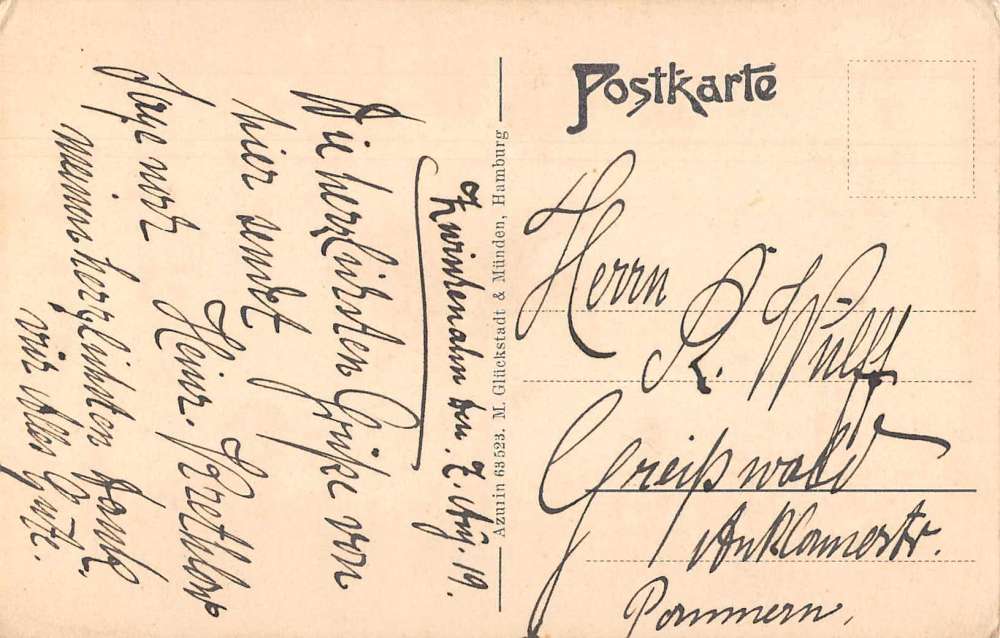 Postkarte
Herrn
R. Wulff
Greißwald
Anklamerstr.
Pommern.
Azurin 63523. M. Glückstadt & Münden, Hamburg
Zwischenahn den 2. Aug. 19.
Die herzlichsten Grüße von
hier sendet
Heinr.
Sage noch
meinen herzlichsten Dank.
für Alles Gute.